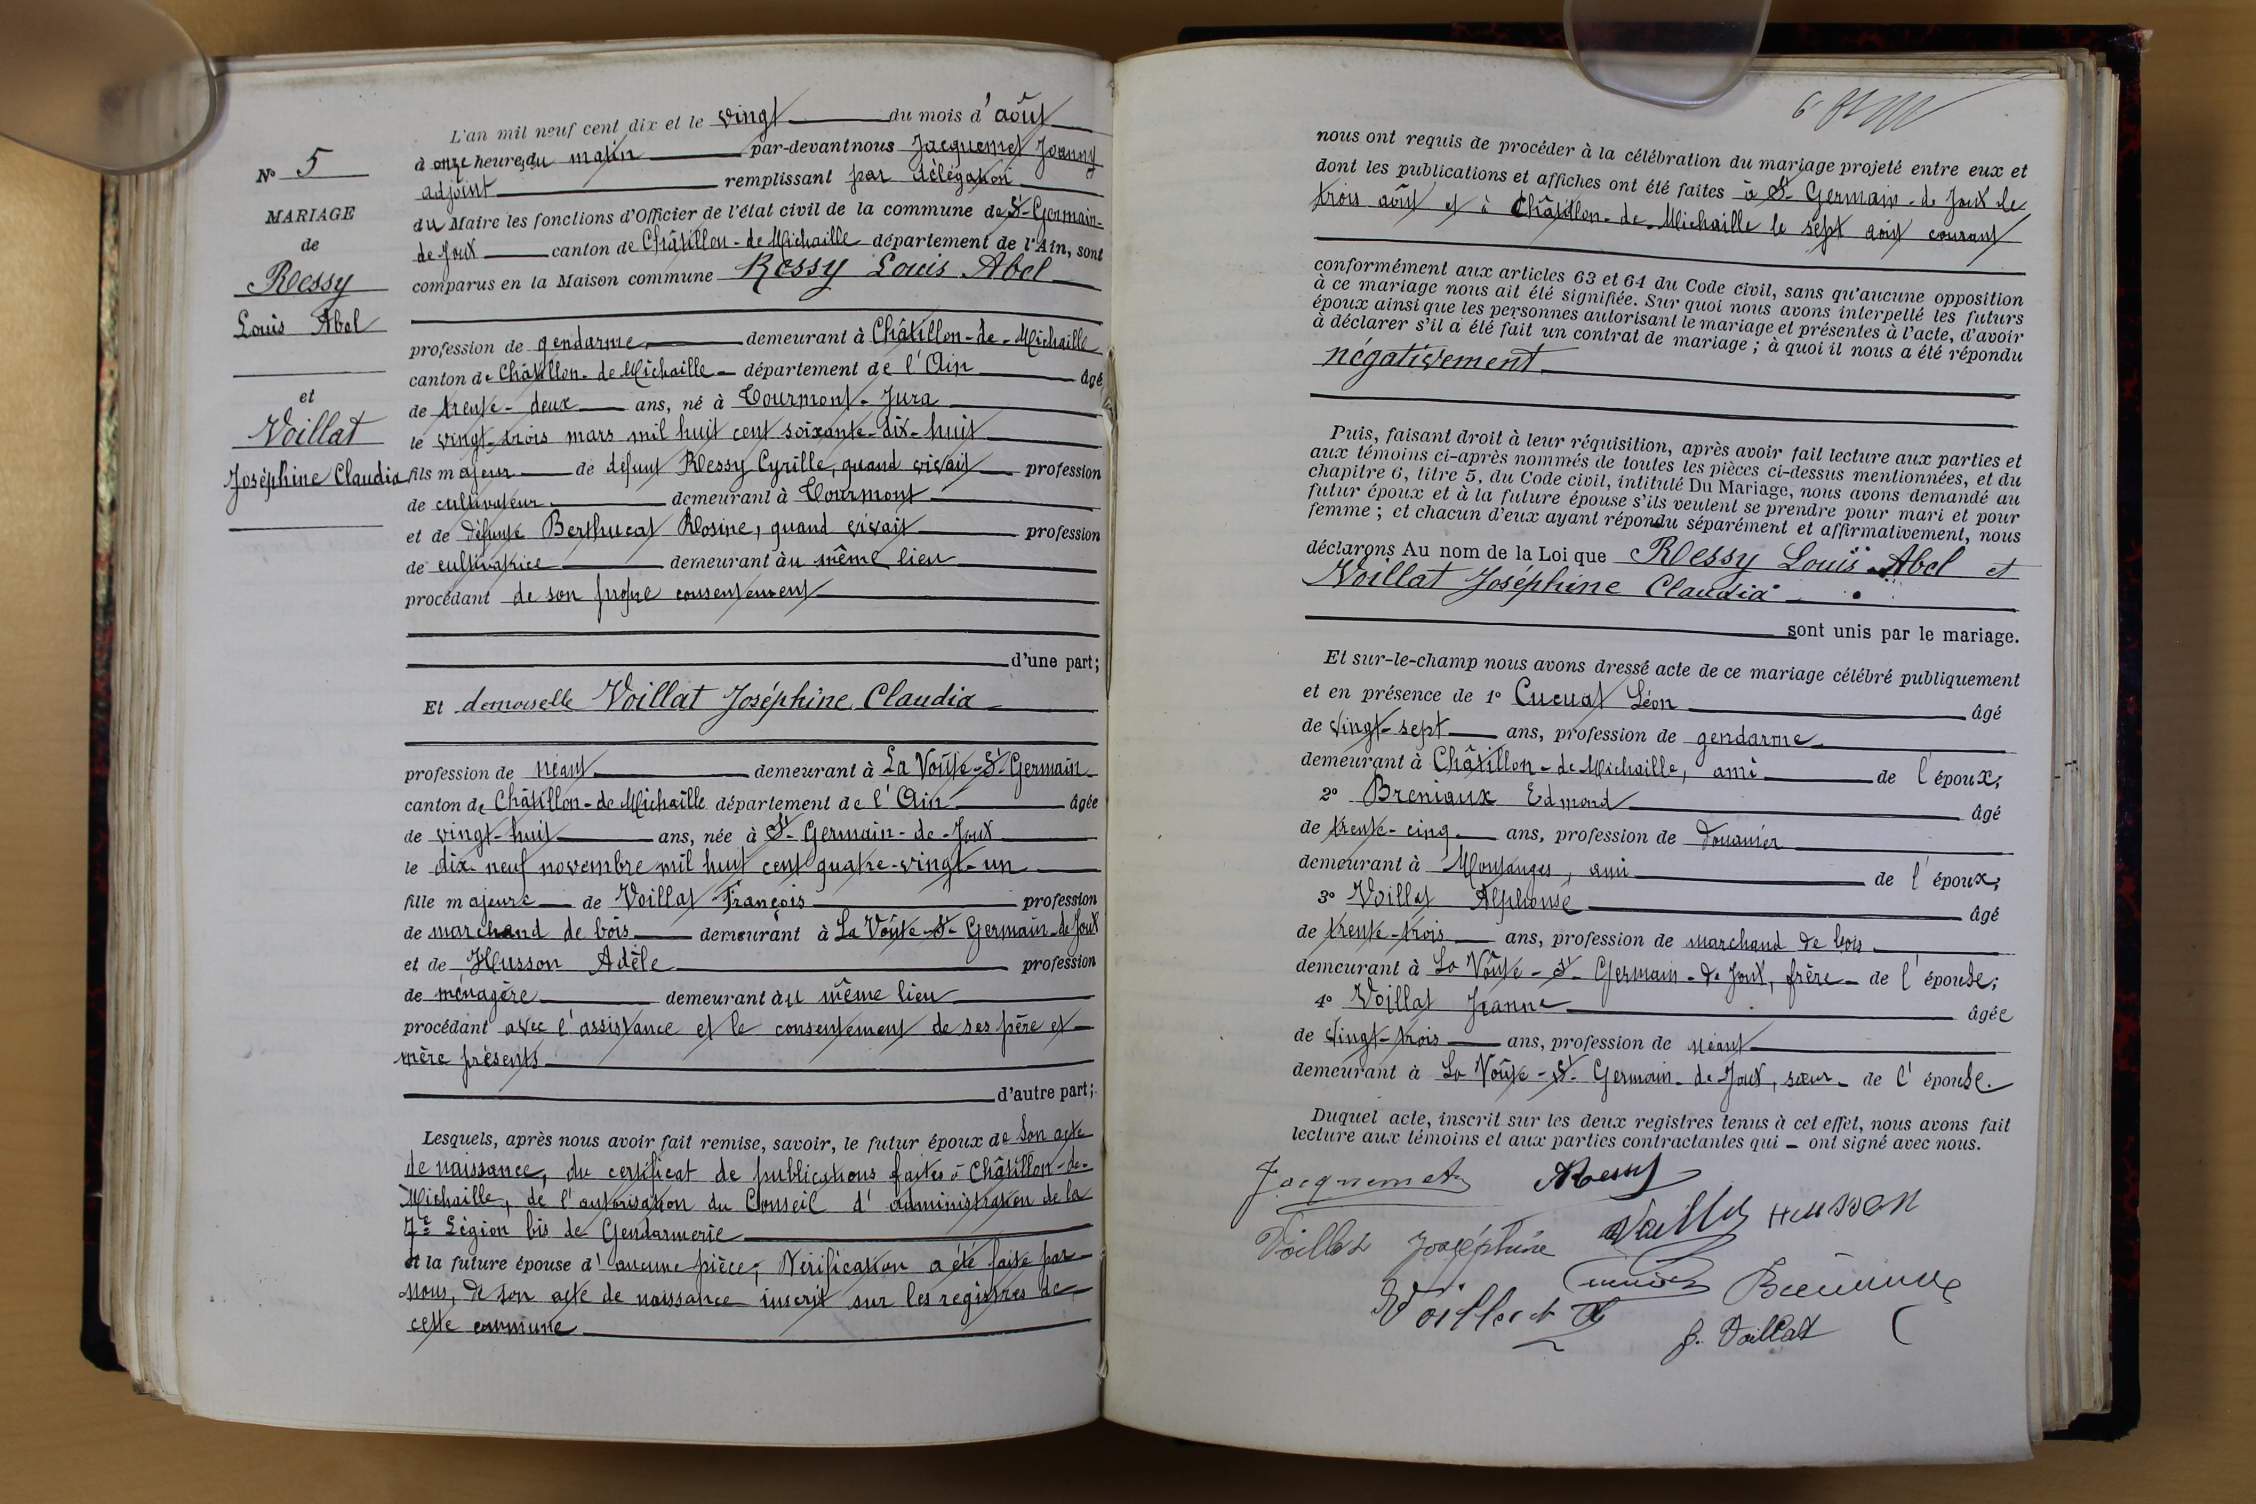 N° 5
MARIAGE
de
Ressy
Louis Abel
et
Voillat
Joséphine Claudia
L'an mil neuf cent dix et le vingt du mois d'août
à onze heures du matin par-devant nous Jacquemet Joanny
adjoint remplissant par délégation
du Maire les fonctions d'Officier de l'état civil de la commune de St-Germain-
de Joux canton de Châtillon-de-Michaille département de l'Ain, sont
comparus en la Maison commune Ressy Louis Abel
profession de gendarme demeurant à Châtillon-de-Michaille
canton de Châtillon-de-Michaille département de l'Ain âgé
de trente-deux ans, né à Tourmont-Jura
le vingt-trois mars mil huit cent soixante-dix-huit
fils majeur de défunt Ressy Cyrille, quand vivait profession
de cultivateur demeurant à Tourmont
et de défunte Berthucat Rosine, quand vivait profession
de cultivatrice demeurant au même lieu
procédant de son propre consentement
d'une part;
Et demoiselle Voillat Joséphine Claudia
profession de néant demeurant à La Voûte-St-Germain
canton de Châtillon-de-Michaille département de l'Ain âgée
de vingt-huit ans, née à St-Germain-de-Joux
le dix-neuf novembre mil huit cent quatre-vingt-un
fille majeure de Voillat François profession
de marchand de bois demeurant à La Voûte-St-Germain-de Joux
et de Husson Adèle profession
de ménagère demeurant au même lieu
procédant avec l'assistance et le consentement de ses père et
mère présents
d'autre part;
Lesquels, après nous avoir fait remise, savoir, le futur époux de son acte
de naissance, du certificat de publications faites à Châtillon-de-
Michaille, de l'autorisation du Conseil d'administration de la
7e Légion bis de Gendarmerie
et la future épouse d'aucune pièce; Vérification a été faite par
nous, de son acte de naissance inscrit sur les registres de
cette commune
nous ont requis de procéder à la célébration du mariage projeté entre eux et
dont les publications et affiches ont été faites à St-Germain-de Joux le
trois août et à Châtillon-de-Michaille le sept août courant
conformément aux articles 63 et 64 du Code civil, sans qu'aucune opposition
à ce mariage nous ait été signifiée. Sur quoi nous avons interpellé les futurs
époux ainsi que les personnes autorisant le mariage et présentes à l'acte, d'avoir
à déclarer s'il a été fait un contrat de mariage; à quoi il nous a été répondu
négativement
Puis, faisant droit à leur réquisition, après avoir fait lecture aux parties et
aux témoins ci-après nommés de toutes les pièces ci-dessus mentionnées, et du
chapitre 6, titre 5, du Code civil, intitulé Du Mariage, nous avons demandé au
futur époux et à la future épouse s'ils veulent se prendre pour mari et pour
femme; et chacun d'eux ayant répondu séparément et affirmativement, nous
déclarons Au nom de la Loi que Ressy Louis Abel et
Voillat Joséphine Claudia
sont unis par le mariage.
Et sur-le-champ nous avons dressé acte de ce mariage célébré publiquement
et en présence de 1° Cucuat Léon âgé
de vingt-sept ans, profession de gendarme
demeurant à Châtillon-de Michaille, ami de l'époux;
2° Breniaux Edmond âgé
de trente-cinq ans, profession de douanier
demeurant à Montanges, ami de l'époux;
3° Voillat Alphonse âgé
de trente-trois ans, profession de marchand de bois
demeurant à La Voûte-St-Germain-de Joux, frère de l'épouse;
4° Voillat Jeanne âgée
de vingt-trois ans, profession de néant
demeurant à La Voûte-St-Germain-de-Joux, sœur de l'épouse.
Duquel acte, inscrit sur les deux registres tenus à cet effet, nous avons fait
lecture aux témoins et aux parties contractantes qui ont signé avec nous.
Jacquemet Ressy
Voillat Joséphine Voillat Husson
Voillat A
J. Voillat